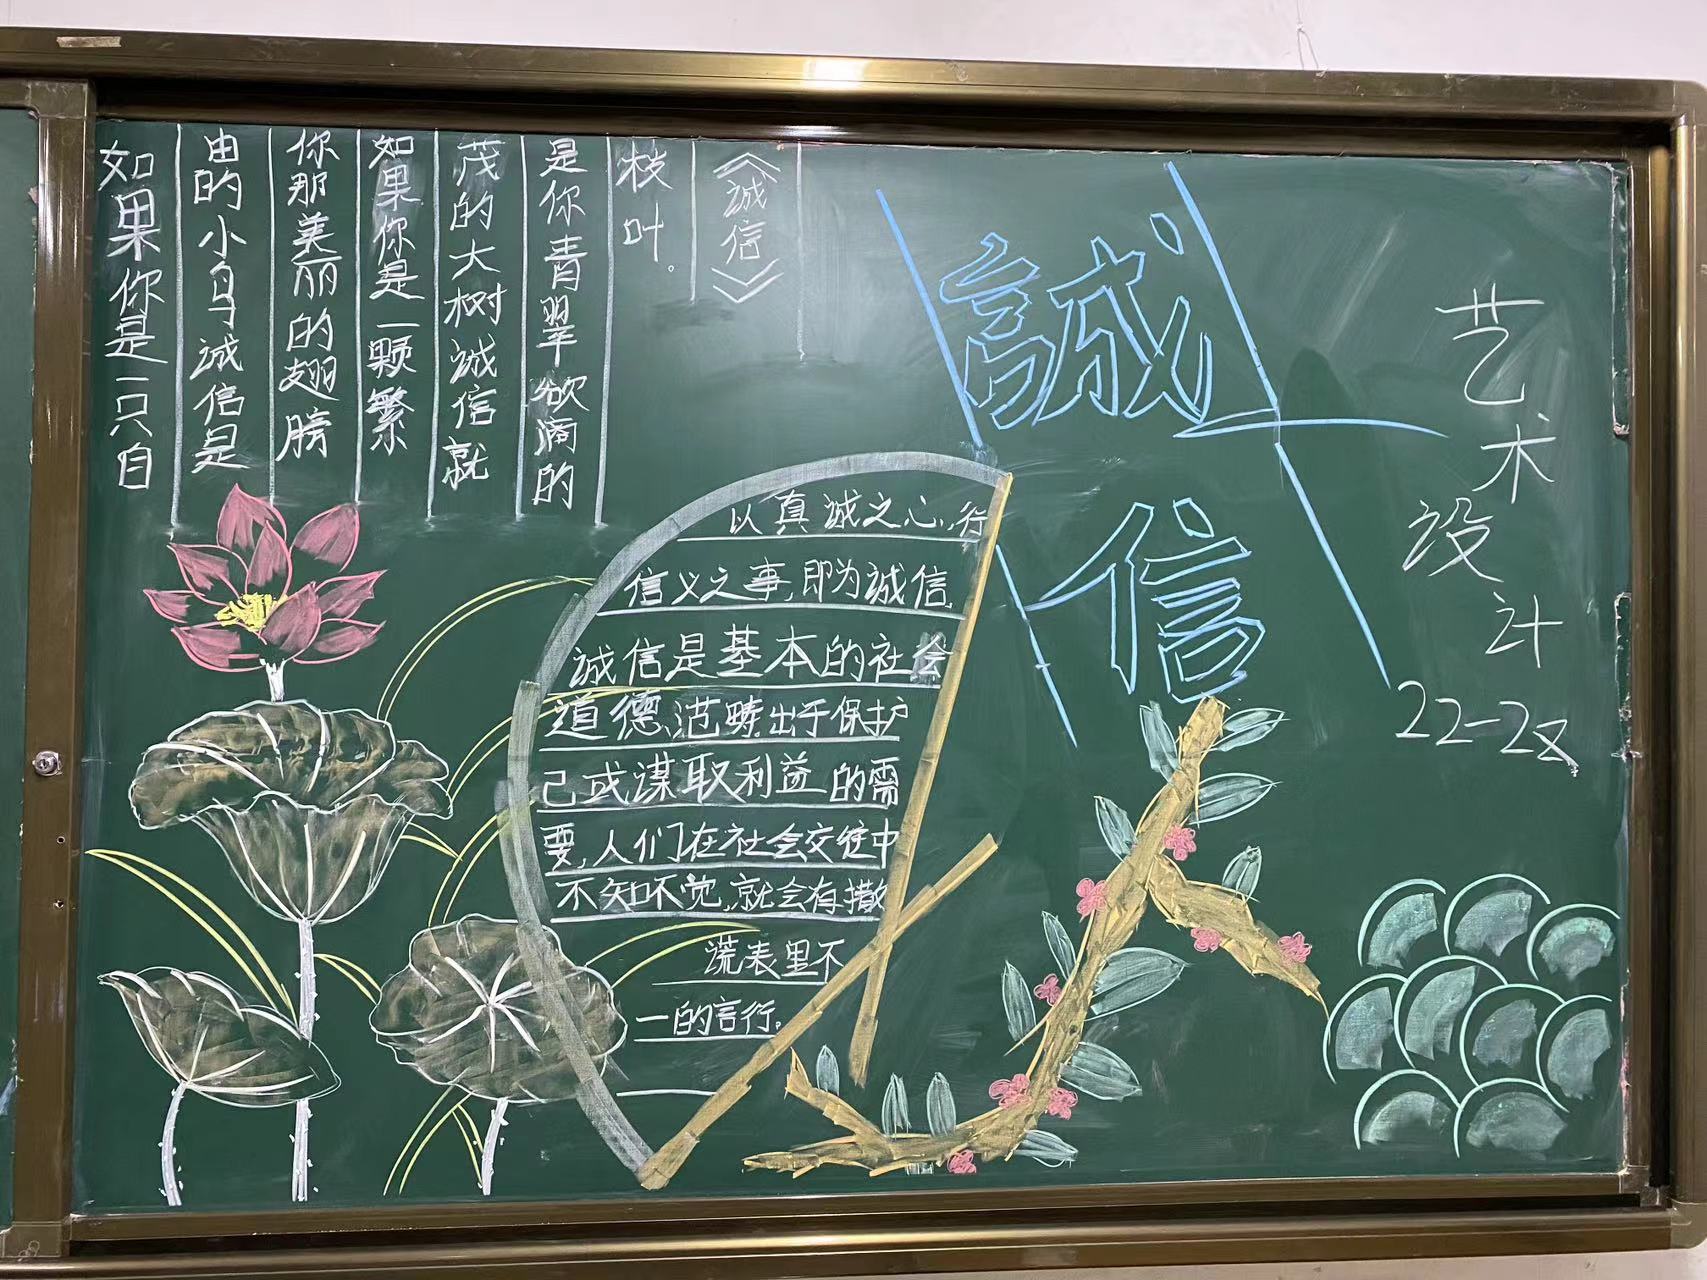 如果你是一只自
由的小鸟诚信是
你那美丽的翅膀
如果你是一颗繁
茂的大树诚信就
是你青翠欲滴的
枝叶。
《诚信》
誠
信
艺术
设计
22-2z
以真诚之心,行
信义之事,即为诚信,
诚信是基本的社会
道德范畴.出于保护
己或谋取利益的需
要,人们在社会交往中
不知不觉,就会有撒
谎表里不
一的言行。